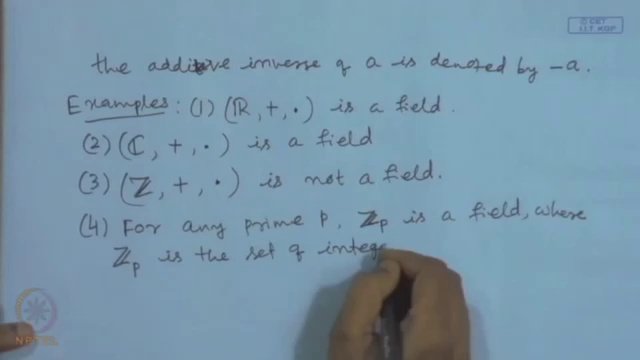 © CET
I.I.T. KGP
the additive inverse of a is denoted by -a.
Examples: (1) (ℝ, +, ·) is a field.
(2) (ℂ, +, ·) is a field
(3) (ℤ, +, ·) is not a field.
(4) For any prime p, ℤp is a field, where
ℤp is the set of integ
NPTEL